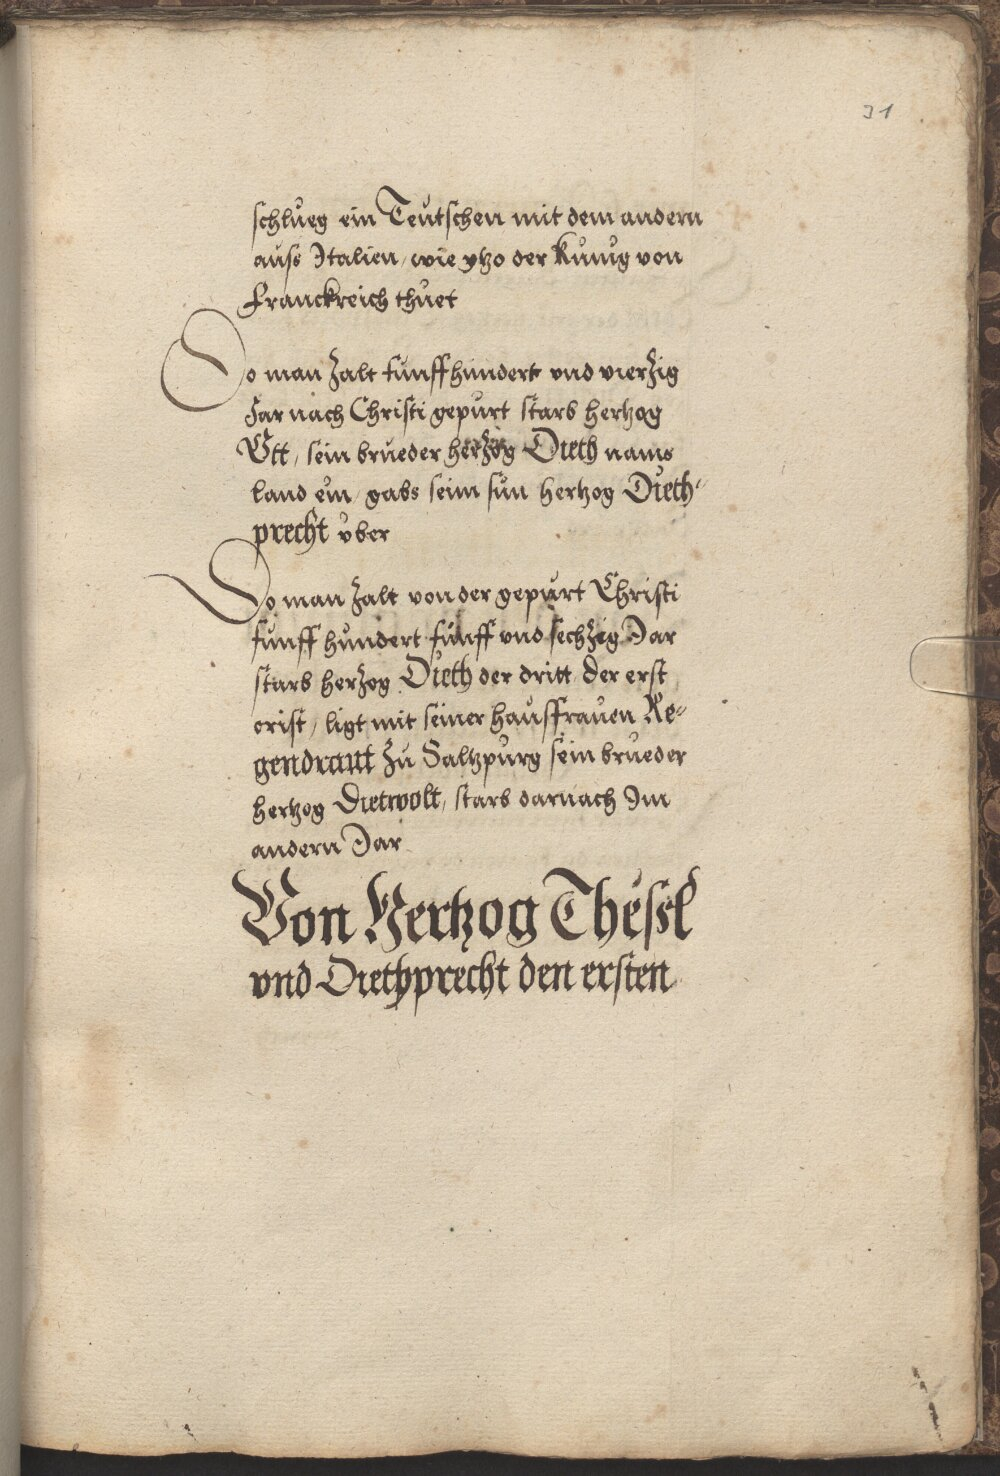 31
schlueg ein Teutschen mit dem andern
auss Italien, wie ytzo der Kunig von
Franckreich thuet
Do man zalt funffhundert vnd vierzig
Jar nach Christi gepurt starb hertzog
Ott, sein brueder herzog Dieth nams
land ein, gabs seim sun hertzog Dieth-
precht vber
Do man zalt von der gepurt Christi
funff hundert funff vnd sechzig Jar
starb herzog Dieth der dritt, der erst
crist, ligt mit seiner haussfrauen Re-
gendraut zu Saltzpurg sein brueder
hertzog Dietwolt, starb darnach Im
andern Jar
Von Hertzog Thessel
vnd Diethprecht den ersten